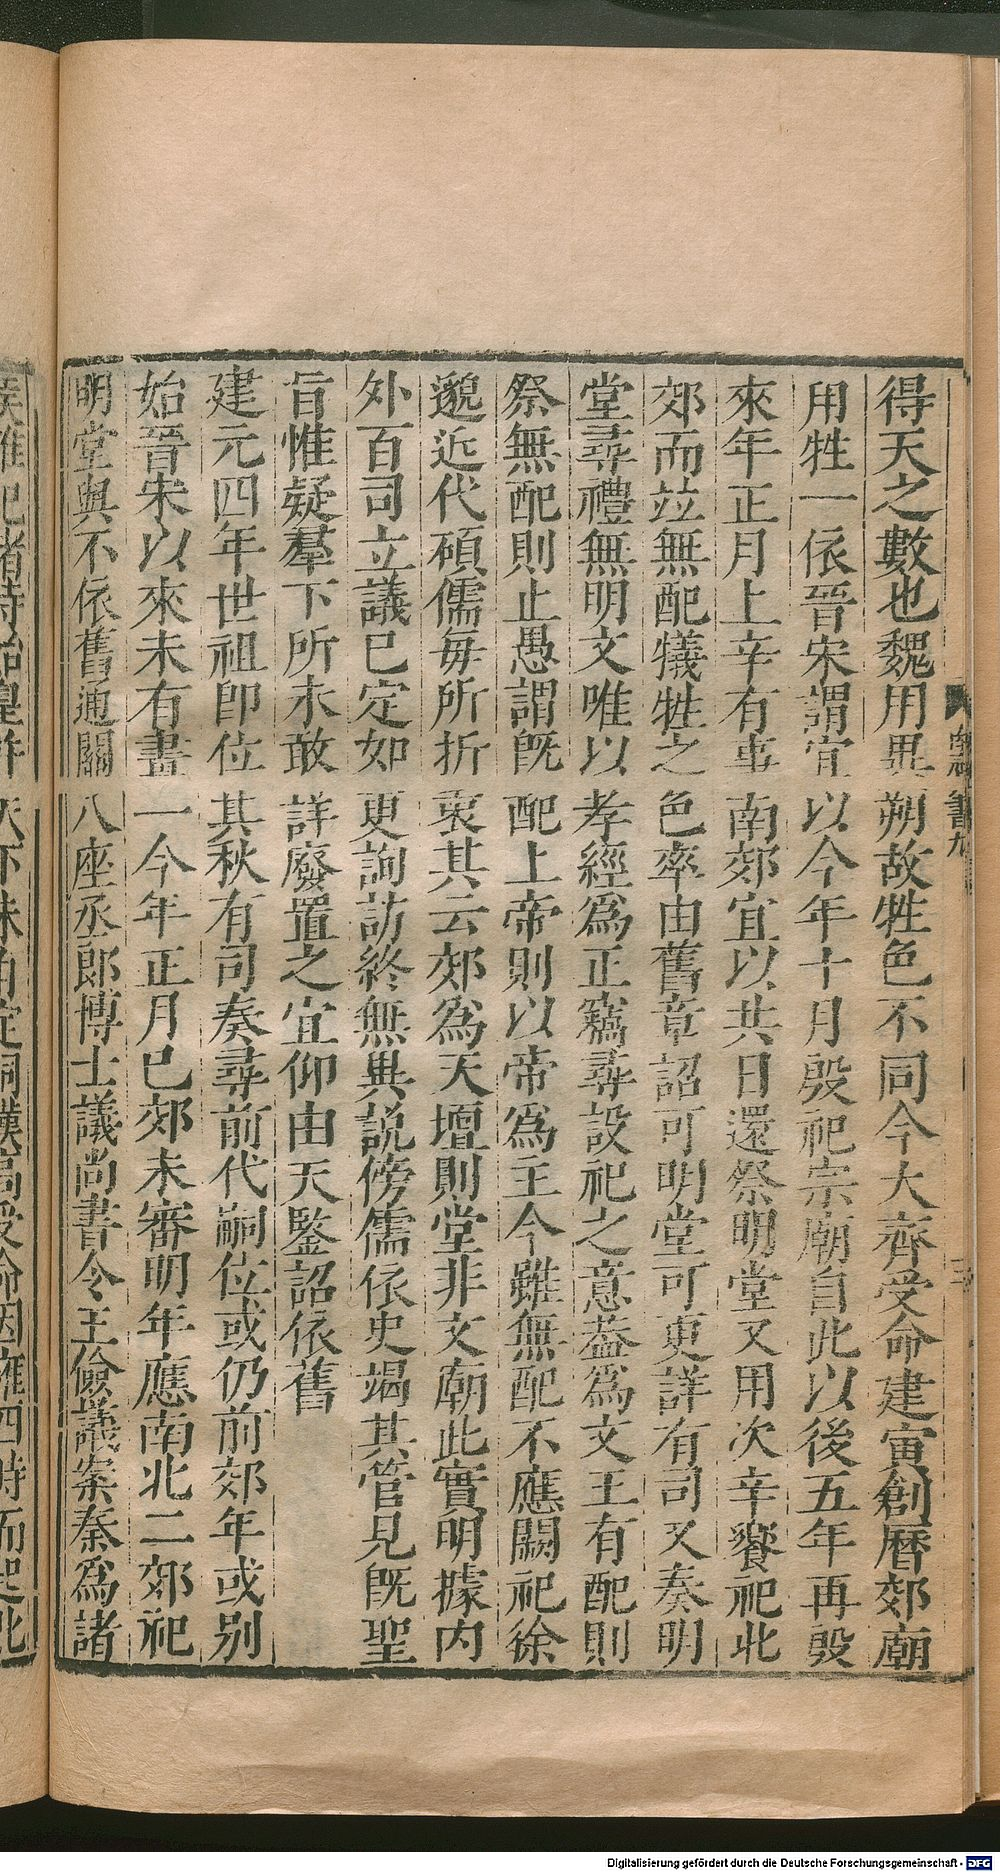 得天之數也魏用異朔故牲色不同今大齊受命建寅創曆郊廟
用牲一依晉宋謂宜以今年十月殷祀宗廟自此以後五年再殷
來年正月上辛有事南郊宜以共日還祭明堂又用次辛饗祀北
郊而竝無配犧牲之色率由舊章詔可明堂可更詳有司又奏明
堂尋禮無明文唯以孝經爲正竊尋設祀之意葢爲文王有配則
祭無配則止愚謂旣配上帝則以帝爲主今雖無配不應闕祀徐
邈近代碩儒每所折衷其云郊爲天壇則堂非文廟此實明據內
外百司立議巳定如更詢訪終無異說傍儒依史竭其管見旣聖
旨惟疑羣下所未敢詳廢置之宜仰由天鑒詔依舊
建元四年世祖卽位其秋有司奏尋前代嗣位或仍前郊年或別
始晉宋以來未有畫一今年正月巳郊未審明年應南北二郊祀
明堂與不依舊通關八座丞郎博士議尚書令王儉議案秦爲諸
書九
Digitalisierung gefördert durch die Deutsche Forschungsgemeinschaft - DFG